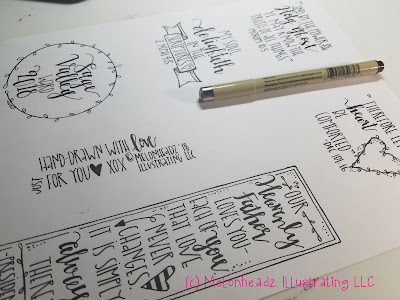 Sage
Valley
WARD
MY SOUL
delighteth
IN THE
Holy Ghost
THEREFORE LET
heart
BE
COMFORTED
HAND-DRAWN WITH love
JUST FOR YOU♥ XOX © MELONHEADZ '16
ILLUSTRATING LLC
OUR
Heavenly
Father
LOVES YOU
EACH OF you
THAT LOVE
NEVER
CHANGES.
IT IS SIMPLY
always
(c) Melonheadz Illustrating LLC